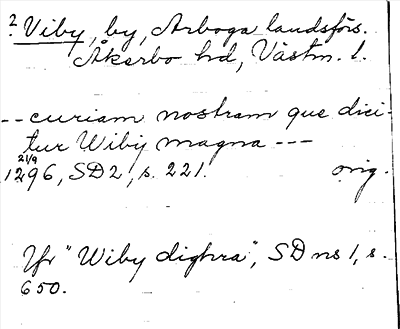 ? Viby, by, Arboga landsförs.
Åkerbo hd, Västm. l.
-- curiam nostram que dici-
tur Wiby magna ---
21/9
1296, SD 2, s. 221. orig.
Jfr "Wiby dighra", SD ns 1, s.
650.